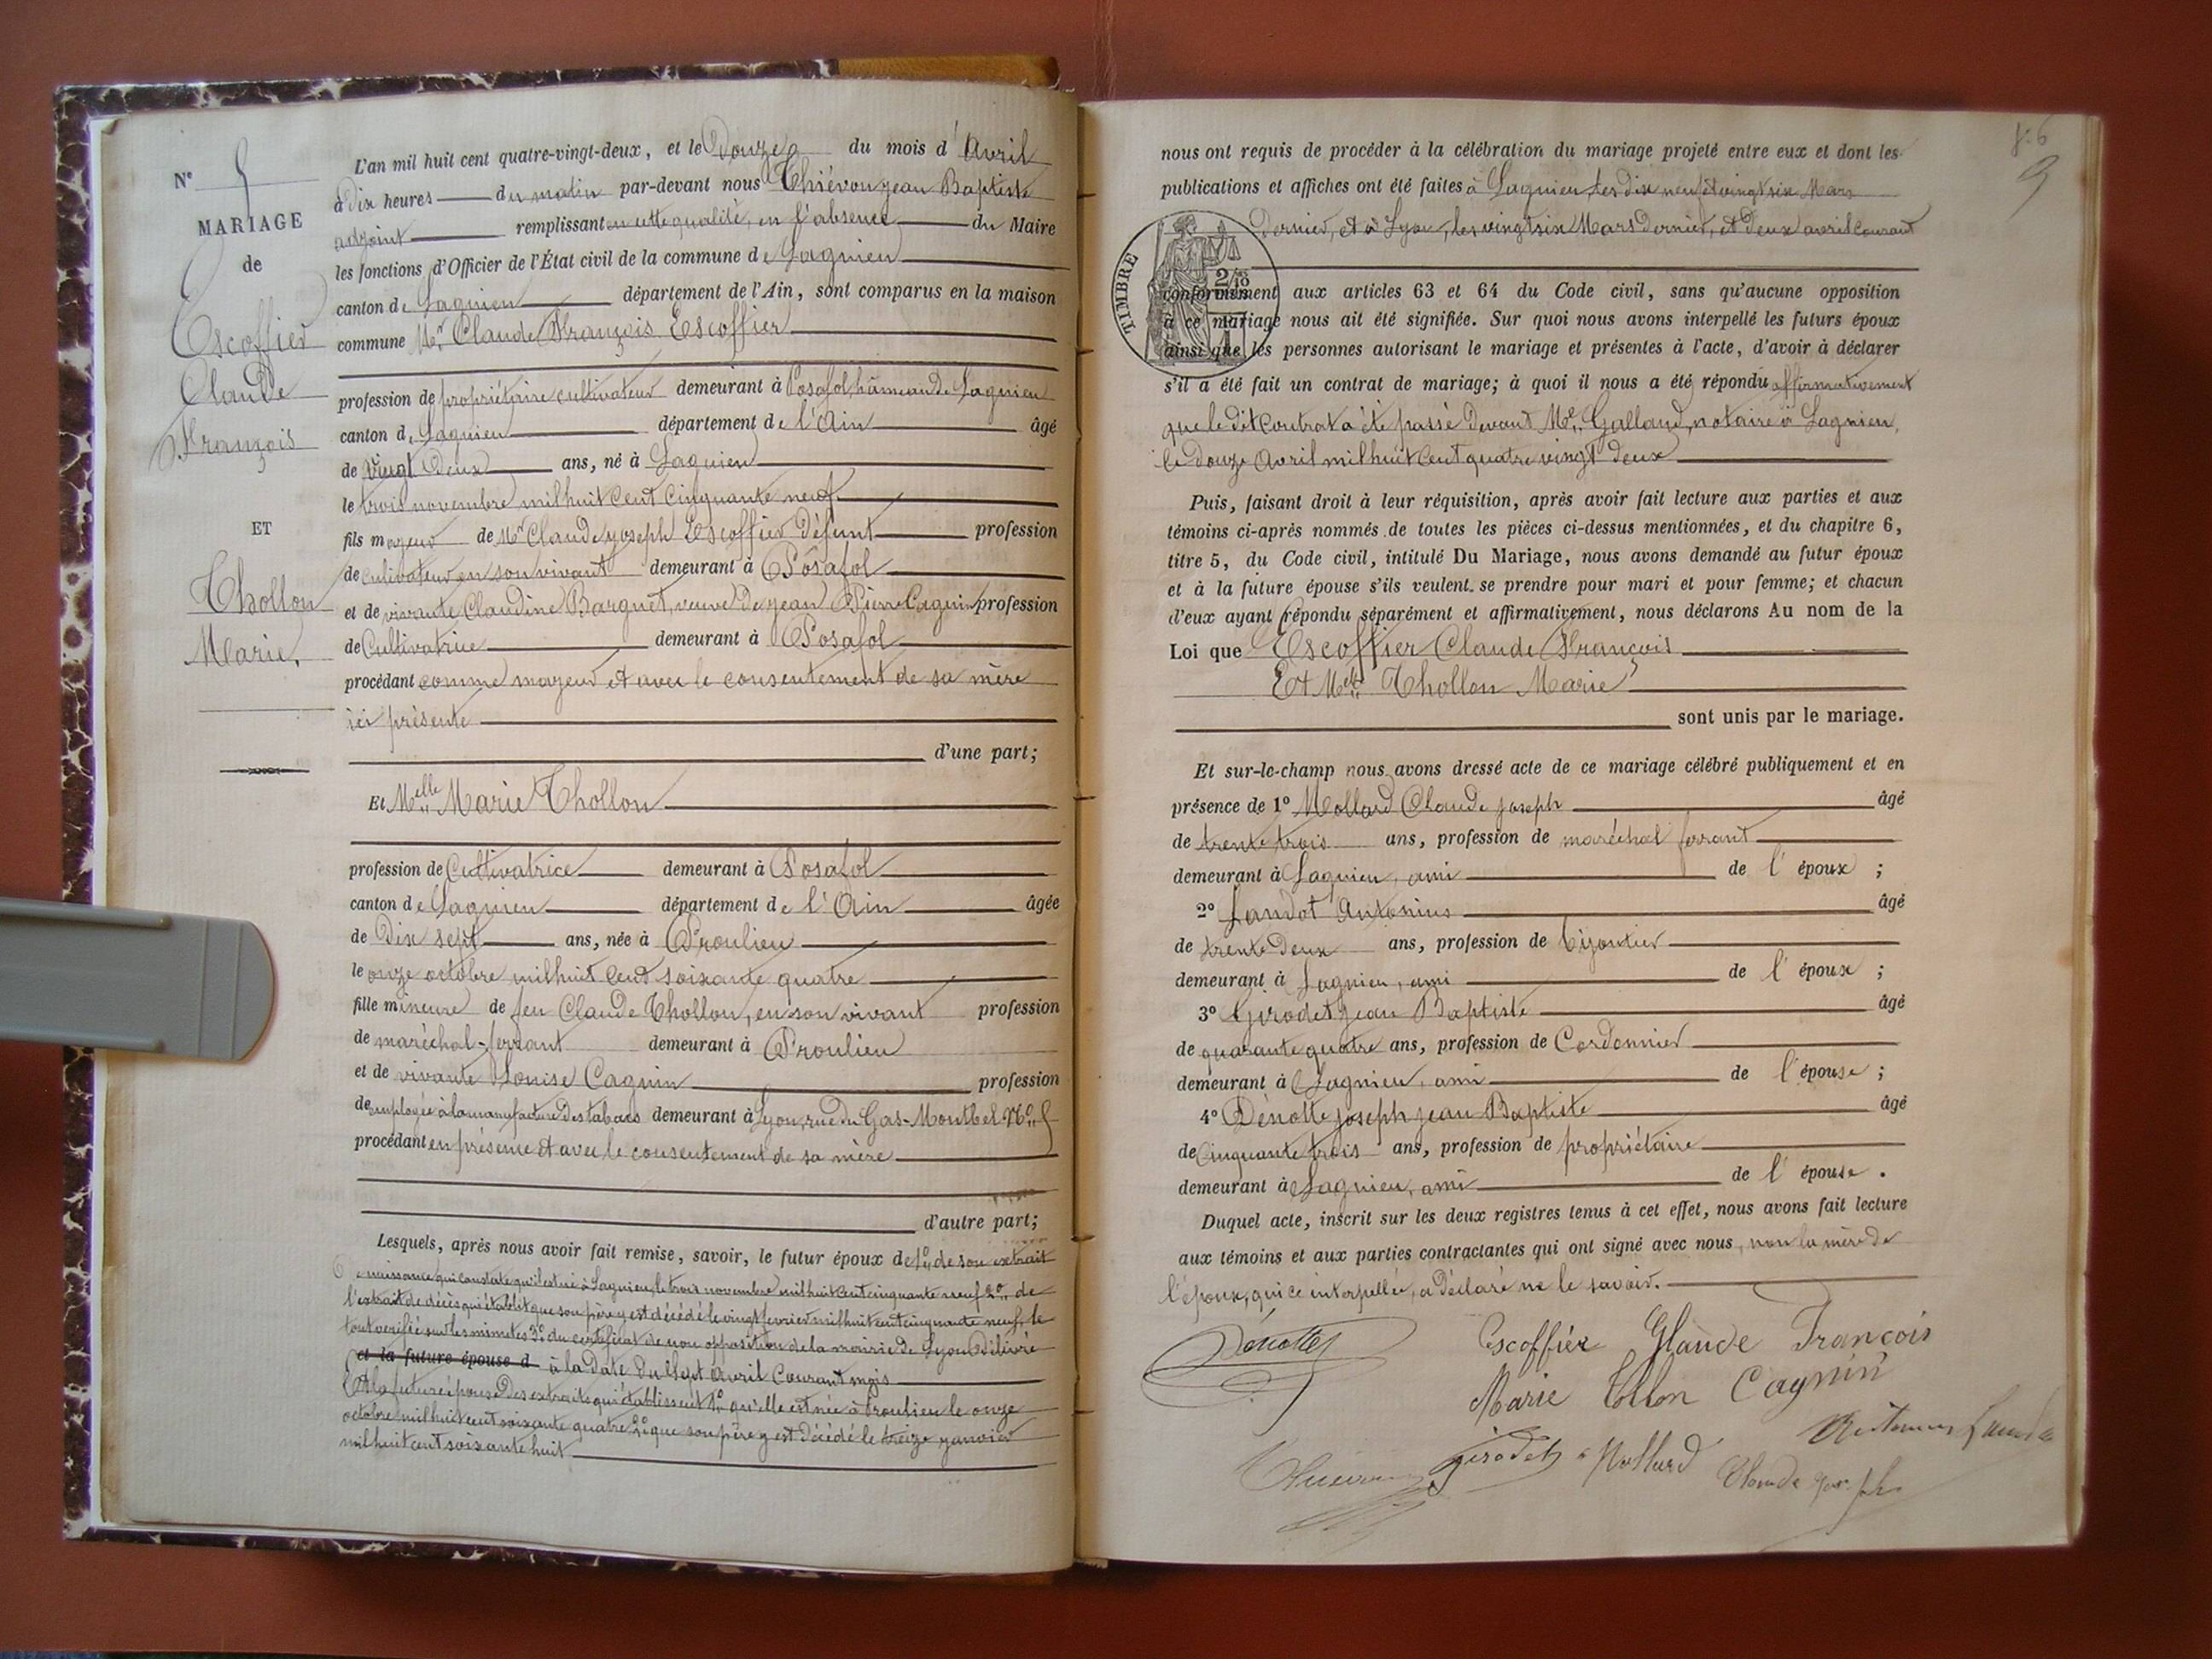 N° 5
MARIAGE
de
Escoffier
Claude
François
ET
Thollon
Marie.
L'an mil huit cent quatre-vingt-deux, et le Douze du mois d'Avril
à Dix heures du matin par-devant nous Thiévon Jean Baptiste
adjoint remplissant en cette qualité, en l'absence du Maire
les fonctions d'Officier de l'État civil de la commune de Lagnieu
canton de Lagnieu département de l'Ain, sont comparus en la maison
commune Mr. Claude François Escoffier
profession de propriétaire cultivateur demeurant à Posafol, hameau de Lagnieu
canton de Lagnieu département de l'Ain âgé
de vingt Deux ans, né à Lagnieu
le trois novembre mil huit cent cinquante neuf
fils majeur de Mr Claude Joseph Escoffier Défunt profession
de cultivateur en son vivant demeurant à Posafol
et de vivante Claudine Barquet, veuve de Jean Pierre Cagnin profession
de Cultivatrice demeurant à Posafol
procédant comme majeur et avec le consentement de sa mère
ici présente
d'une part;
Et Melle Marie Thollon
profession de Cultivatrice demeurant à Posafol
canton de Lagnieu département de l'Ain âgée
de Dix sept ans, née à Proulieu
le onze octobre mil huit cent soixante quatre
fille mineure de feu Claude Thollon, en son vivant profession
de maréchal-ferrant demeurant à Proulieu
et de vivante Louise Cagnin profession
de employée à la manufacture des tabacs demeurant à Lyon, rue du Gas-Montbel No. 5
procédant en présence et avec le consentement de sa mère
d'autre part;
Lesquels, après nous avoir fait remise, savoir, le futur époux de 1° de son extrait
de naissance qui constate qu'il est né à Lagnieu, le trois novembre mil huit cent cinquante neuf 2° de
l'extrait de décès qui établit que son père y est décédé le vingt fevrier mil huit cent cinquante neuf, le
tout vérifié sur les minutes 3° du certificat de non opposition de la mairie de Lyon Délivré
et la future épouse d à la Date du Sept avril Courant mois
Et la future épouse Des extraits qui établissent 1° qu'elle est née à Proulieu le onze
octobre mil huit cent soixante quatre 2° que son père y est décédé le treize janvier
mil huit cent soixante huit
f: 6
9
nous ont requis de procéder à la célébration du mariage projeté entre eux et dont les
publications et affiches ont été faites à Lagnieu, les dix neuf et vingt six Mars
Dernier, et à Lyon, les vingt six Mars dernier, et deux avril Courant
TIMBRE
2/10
conformément aux articles 63 et 64 du Code civil, sans qu'aucune opposition
à ce mariage nous ait été signifiée. Sur quoi nous avons interpellé les futurs époux
ainsi que les personnes autorisant le mariage et présentes à l'acte, d'avoir à déclarer
s'il a été fait un contrat de mariage; à quoi il nous a été répondu affirmativement
que le dit Contrat a été passé Devant Me. Galland, notaire à Lagnieu,
le Douze Avril mil huit Cent quatre vingt deux
Puis, faisant droit à leur réquisition, après avoir fait lecture aux parties et aux
témoins ci-après nommés de toutes les pièces ci-dessus mentionnées, et du chapitre 6,
titre 5, du Code civil, intitulé Du Mariage, nous avons demandé au futur époux
et à la future épouse s'ils veulent se prendre pour mari et pour femme; et chacun
d'eux ayant répondu séparément et affirmativement, nous déclarons Au nom de la
Loi que Escoffier Claude François
Et Melle Thollon Marie
sont unis par le mariage.
Et sur-le-champ nous avons dressé acte de ce mariage célébré publiquement et en
présence de 1° Mollard Claude Joseph âgé
de trente trois ans, profession de maréchal ferrant
demeurant à Lagnieu, ami de l'époux ;
2° Landot Antonius âgé
de trente Deux ans, profession de bijoutier
demeurant à Lagnieu, ami de l'époux ;
3° Girodet Jean Baptiste âgé
de quarante quatre ans, profession de Cordonnier
demeurant à Lagnieu, ami de l'épouse ;
4° Dénotte Joseph Jean Baptiste âgé
de Cinquante trois ans, profession de propriétaire
demeurant à Lagnieu, ami de l'épouse .
Duquel acte, inscrit sur les deux registres tenus à cet effet, nous avons fait lecture
aux témoins et aux parties contractantes qui ont signé avec nous, non la mère de
l'époux, qui ce interpellée, a Déclaré ne le savoir.
Dénotte Escoffier Glaude François
Marie Tollon Cagnin
Girodet Mollard Claude Joseph